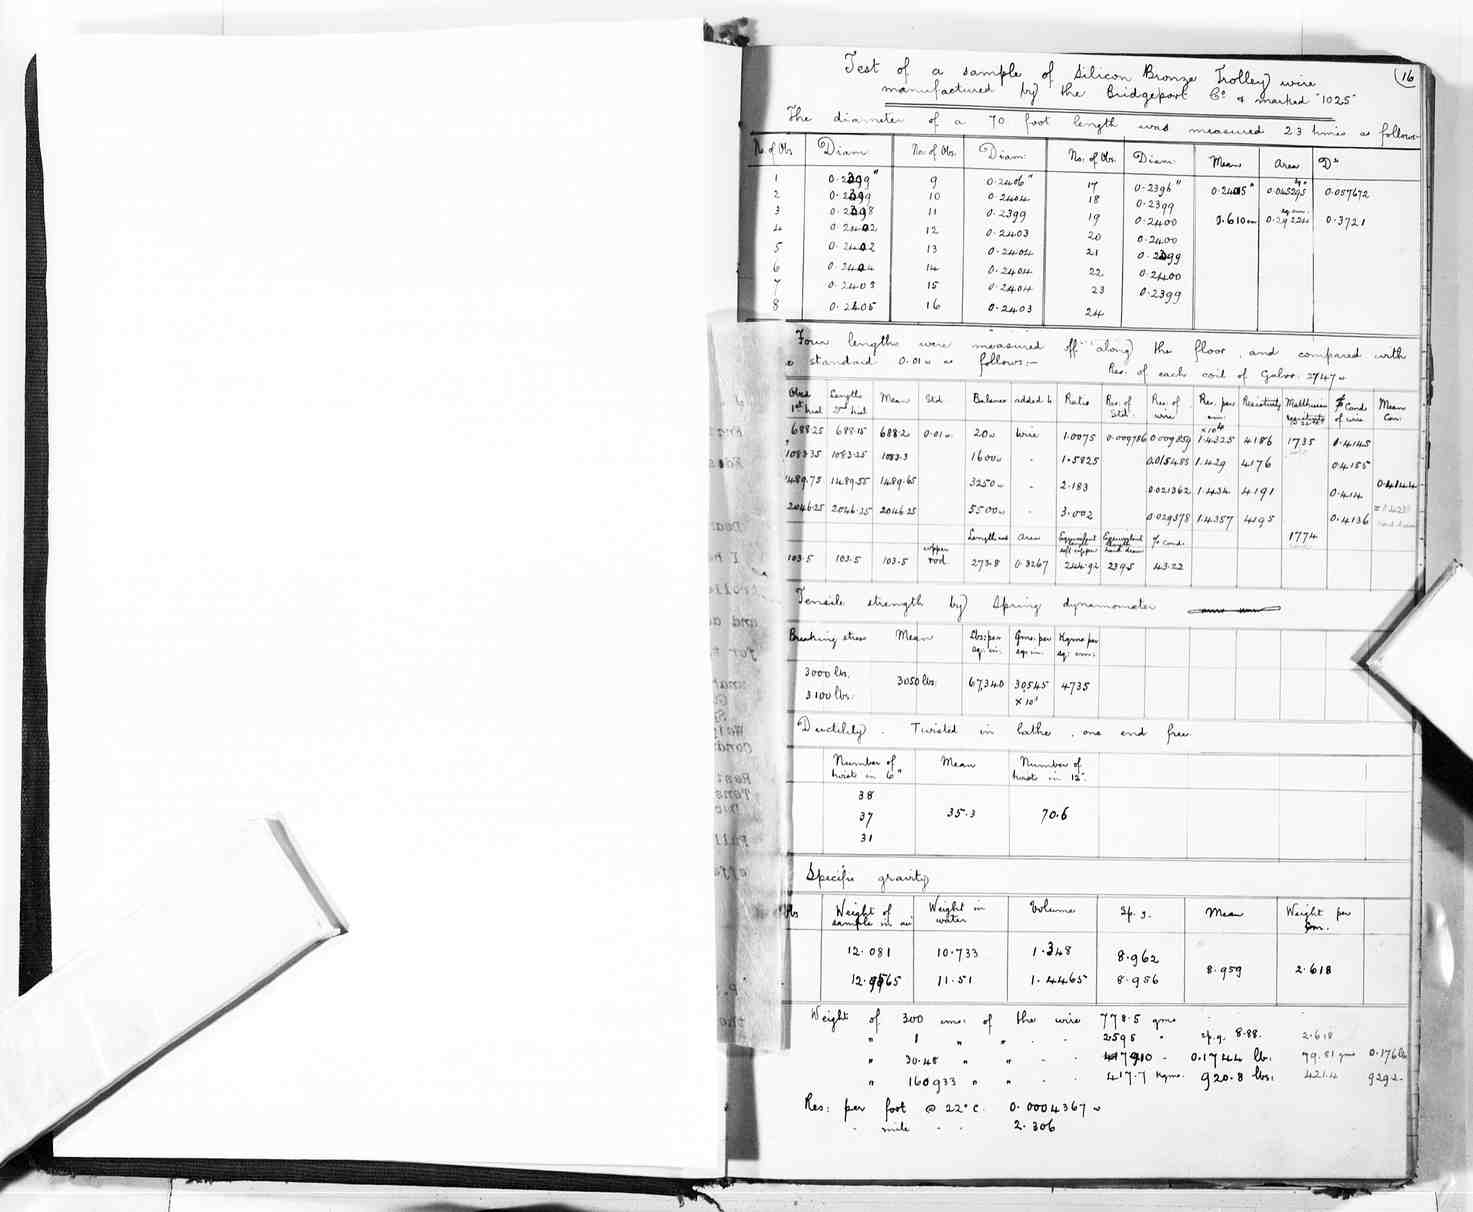 16
Test of a sample of Silicon Bronze Trolley wire
manufactured by the Bridgeport Co & marked "1025"
The diameter of a 70 foot length was measured 23 times as follows
No. of Obs Diam No. of Obs. Diam: No. of Obs. Diam: Mean Area D²
1 0.2399" 9 0.2406" 17 0.2396" 0.2405" 0.045295 0.057672
2 0.2399 10 0.2404 18 0.2399
3 0.2398 11 0.2399 19 0.2400 0.610 cm 0.29224 0.3721
4 0.2402 12 0.2403 20 0.2400
5 0.2402 13 0.2404 21 0.2399
6 0.2404 14 0.2404 22 0.2400
7 0.2403 15 0.2404 23 0.2399
8 0.2405 16 0.2403 24
Four lengths were measured off along the floor, and compared with
standard 0.01ω as follows:-
Res. of each coil of Galvo. 2747ω
Obsd 1st trial Lengths 2nd trial Mean Std Balance added to Ratio Res. of Std. Res. of wire Res. per cm: ×10⁴ Resistivity Matthiessen % Cond of wire Mean Con:
688.25 688.15 688.2 0.01ω 20ω wire 1.0075 0.009786 0.009859 1.4325 4186 1735 0.4145
1083.35 1083.25 1083.3 1600ω " 1.5825 0.015483 1.429 4176 0.4155
1489.75 1489.55 1489.65 3250ω " 2.183 0.021362 1.434 4191 0.414 0.4144
2046.25 2046.25 2046.25 5500ω " 3.002 0.029378 1.4357 4195 0.4136
Length Area Equivalent length soft copper Equivalent length hard drawn % Cond. 1774
103.5 103.5 103.5 copper rod 273.8 0.3267 244.92 239.5 43.22
Tensile strength by Spring dynamometer
Breaking stress Mean Lbs: per sq. in. Gms. per sq. cm. Kgms per sq: cm:
3000 lbs. 3050 lbs: 67,340 30,545 4735
3100 lbs. ×10³
Ductility. Twisted in lathe, one end free
Number of twists in 6" Mean Number of twists in 12".
38
37 35.3 70.6
31
Specific gravity
Obs Weight of sample in air Weight in water Volume Sp. g. Mean Weight per cm.
12.081 10.733 1.348 8.962
8.959 2.618
12.9565 11.51 1.4465 8.956
Weight of 300 cms: of the wire 778.5 gms
" 1 " " " " 2.595 " sp.g. 8.88. 2.618
" 30.48 " " " " 0.1744 lb. 79.81 gms 0.176 lb
" 160933 " " " " 417.7 Kgms. 920.8 lbs: 421.4 929.2
Res: per foot @ 22°C. 0.0004367ω
" mile " " 2.306